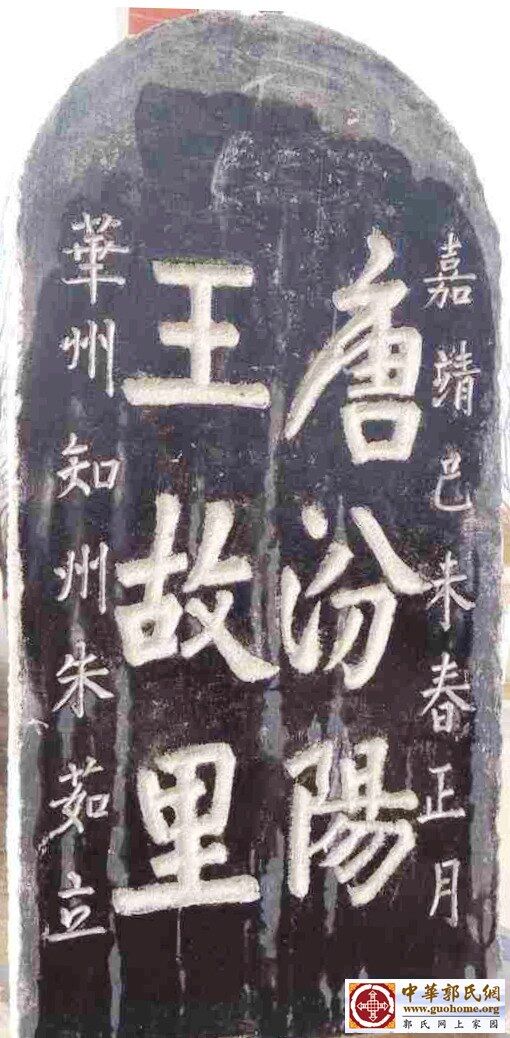 嘉靖己未春正月
唐汾陽
王故里
華州知州朱茹立
中華郭氏網
www.guohome.org
郭氏网上家园